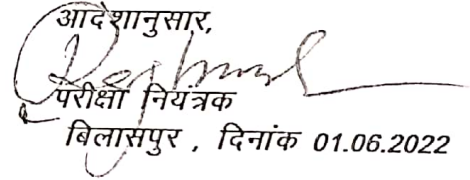 आदेशानुसार,
परीक्षा नियंत्रक
बिलासपुर , दिनांक 01.06.2022